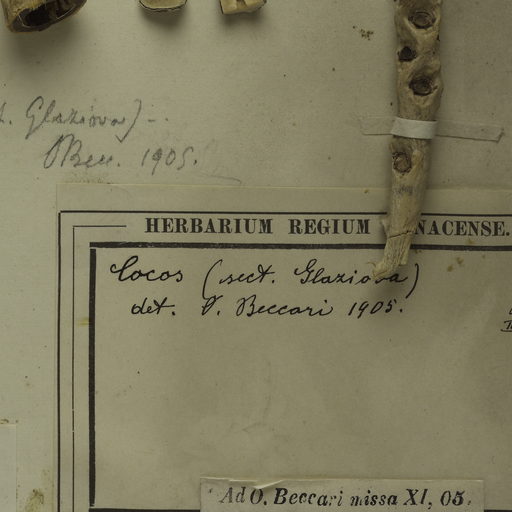 Glaziova)
OBecc. 1905.
HERBARIUM REGIUM NACENSE.
Cocos (sect. Glaziova)
det. O. Beccari 1905.
Ad O. Beccari missa XI, 05.